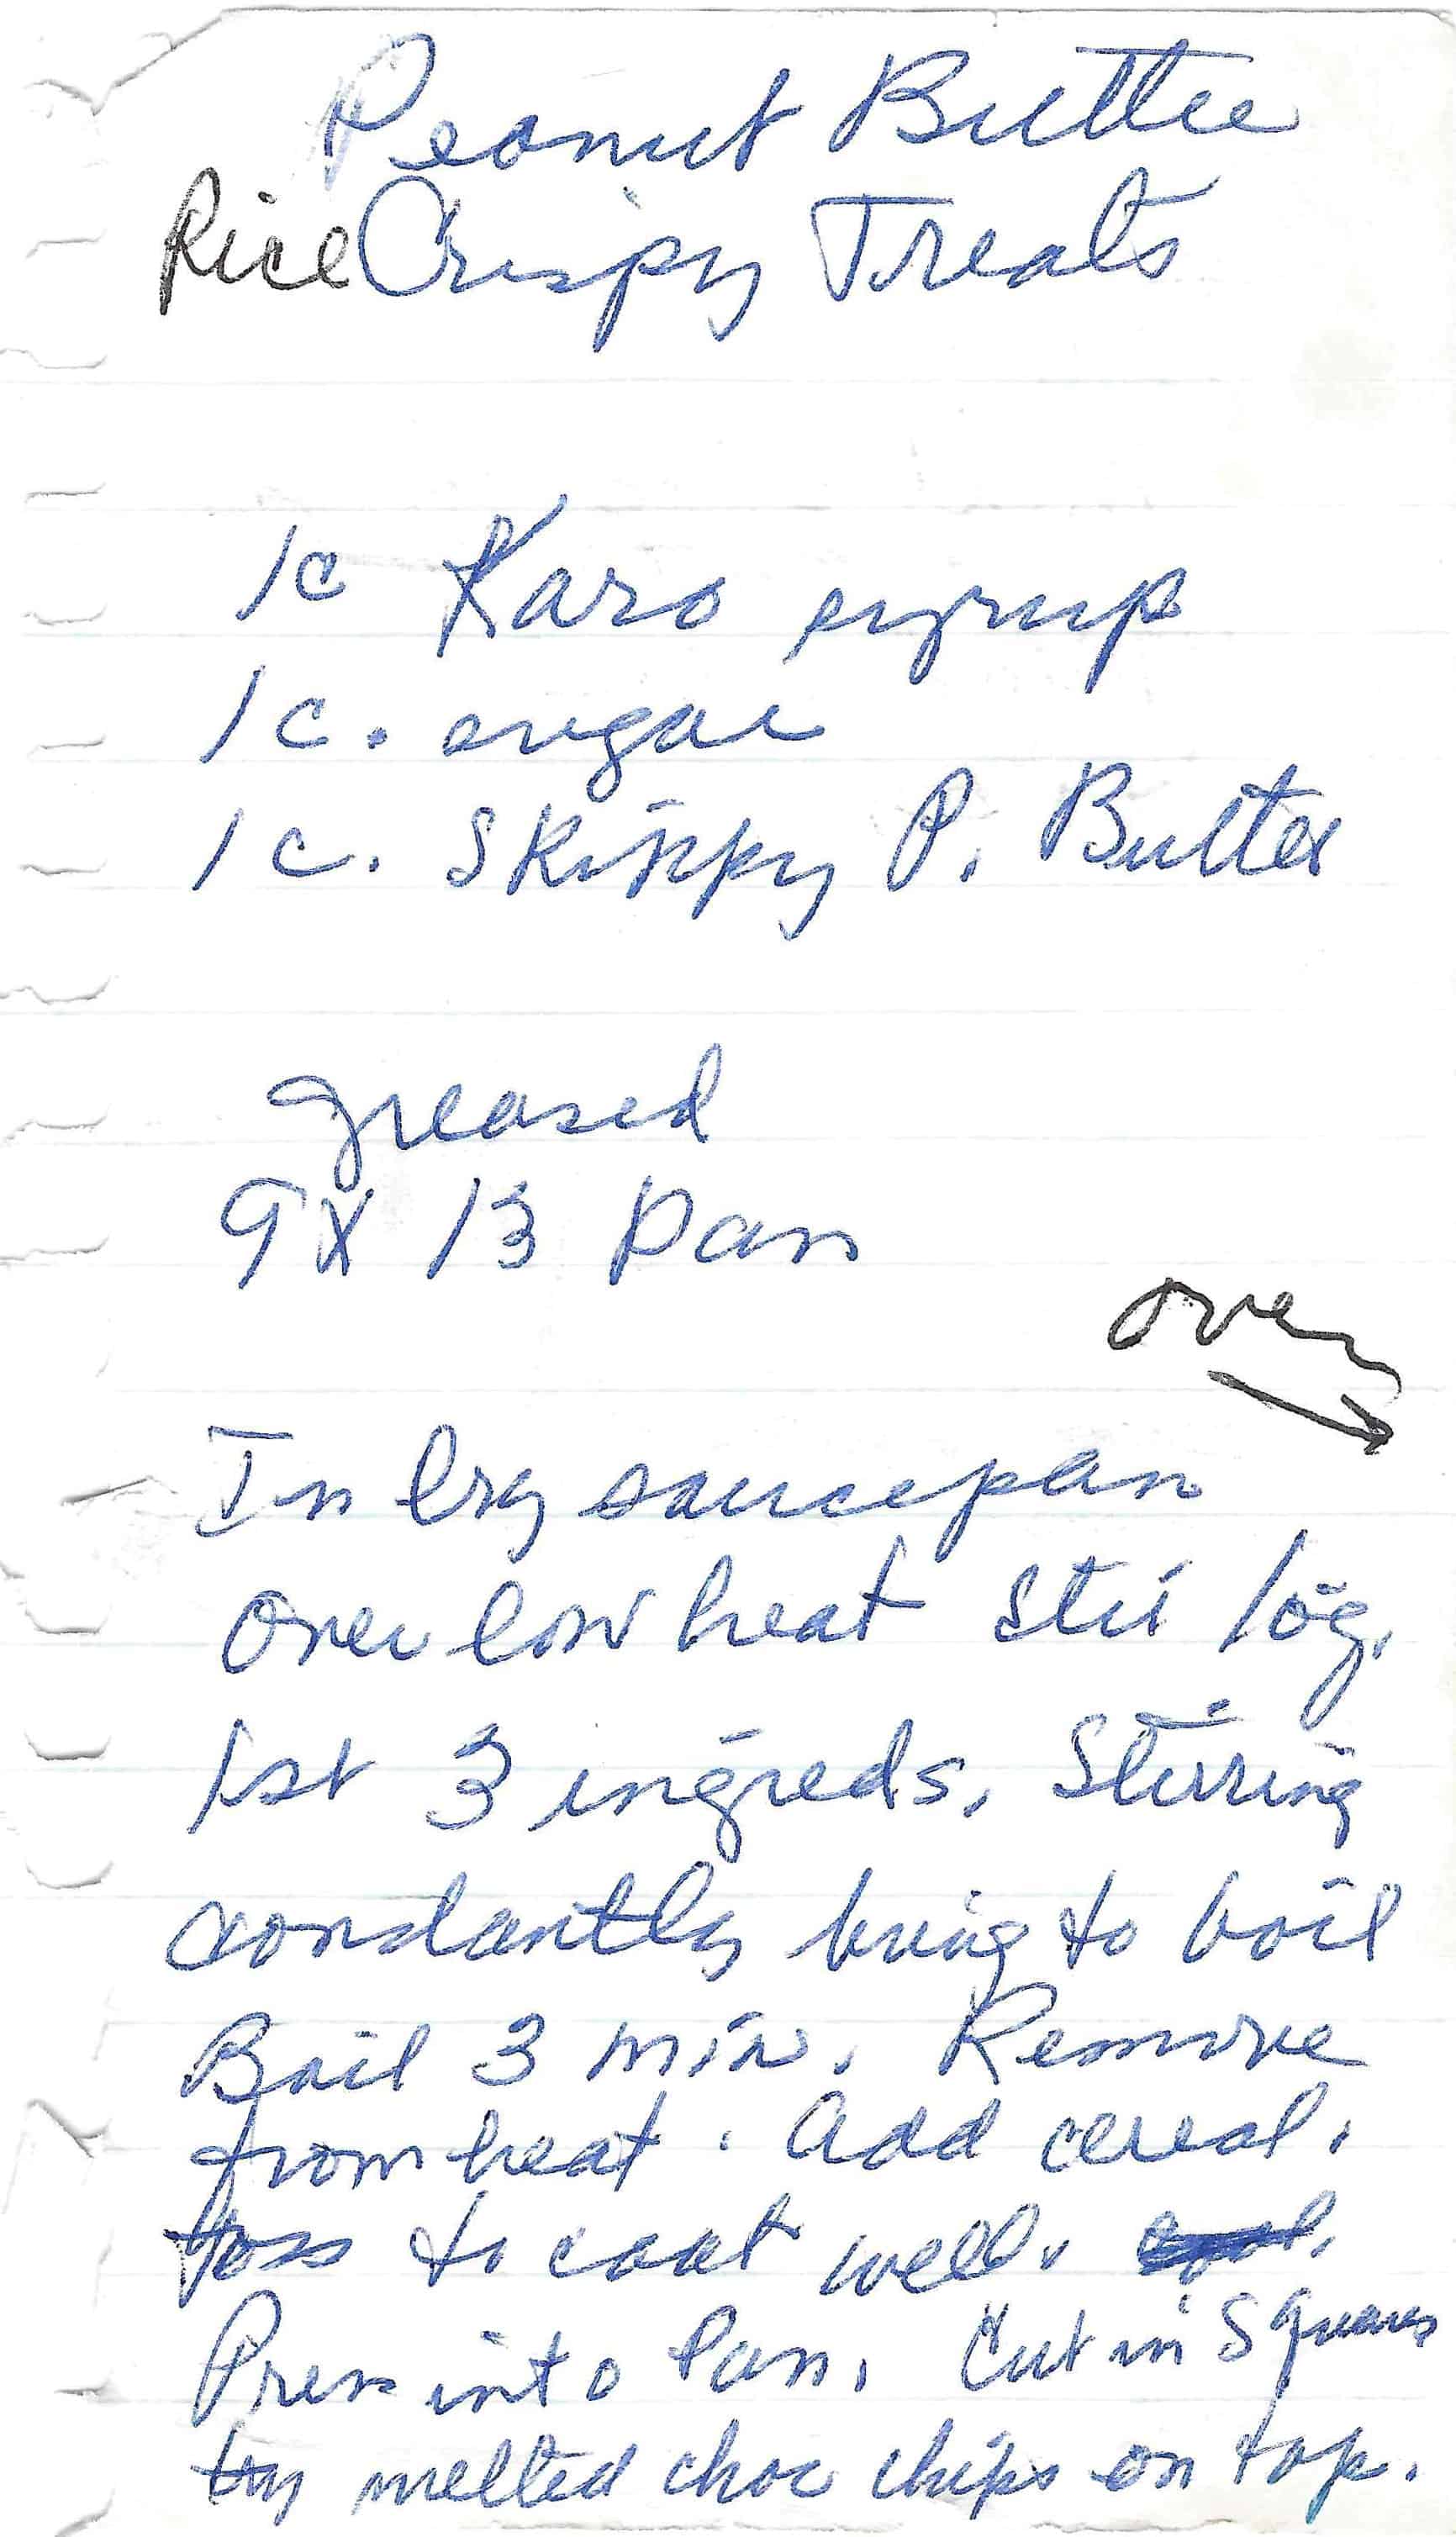 Peanut Butter
Rice Crispy Treats
1c Karo syrup
1c. sugar
1c. Skippy P. Butter
greased
9x13 pan
over
In lrg saucepan
over low heat stir tog.
1st 3 ingreds. Stirring
constantly bring to boil
Boil 3 min. Remove
from heat. Add cereal.
Toss to coat well. cool.
Press into Pan. Cut in Squares
try melted choc chips on top.